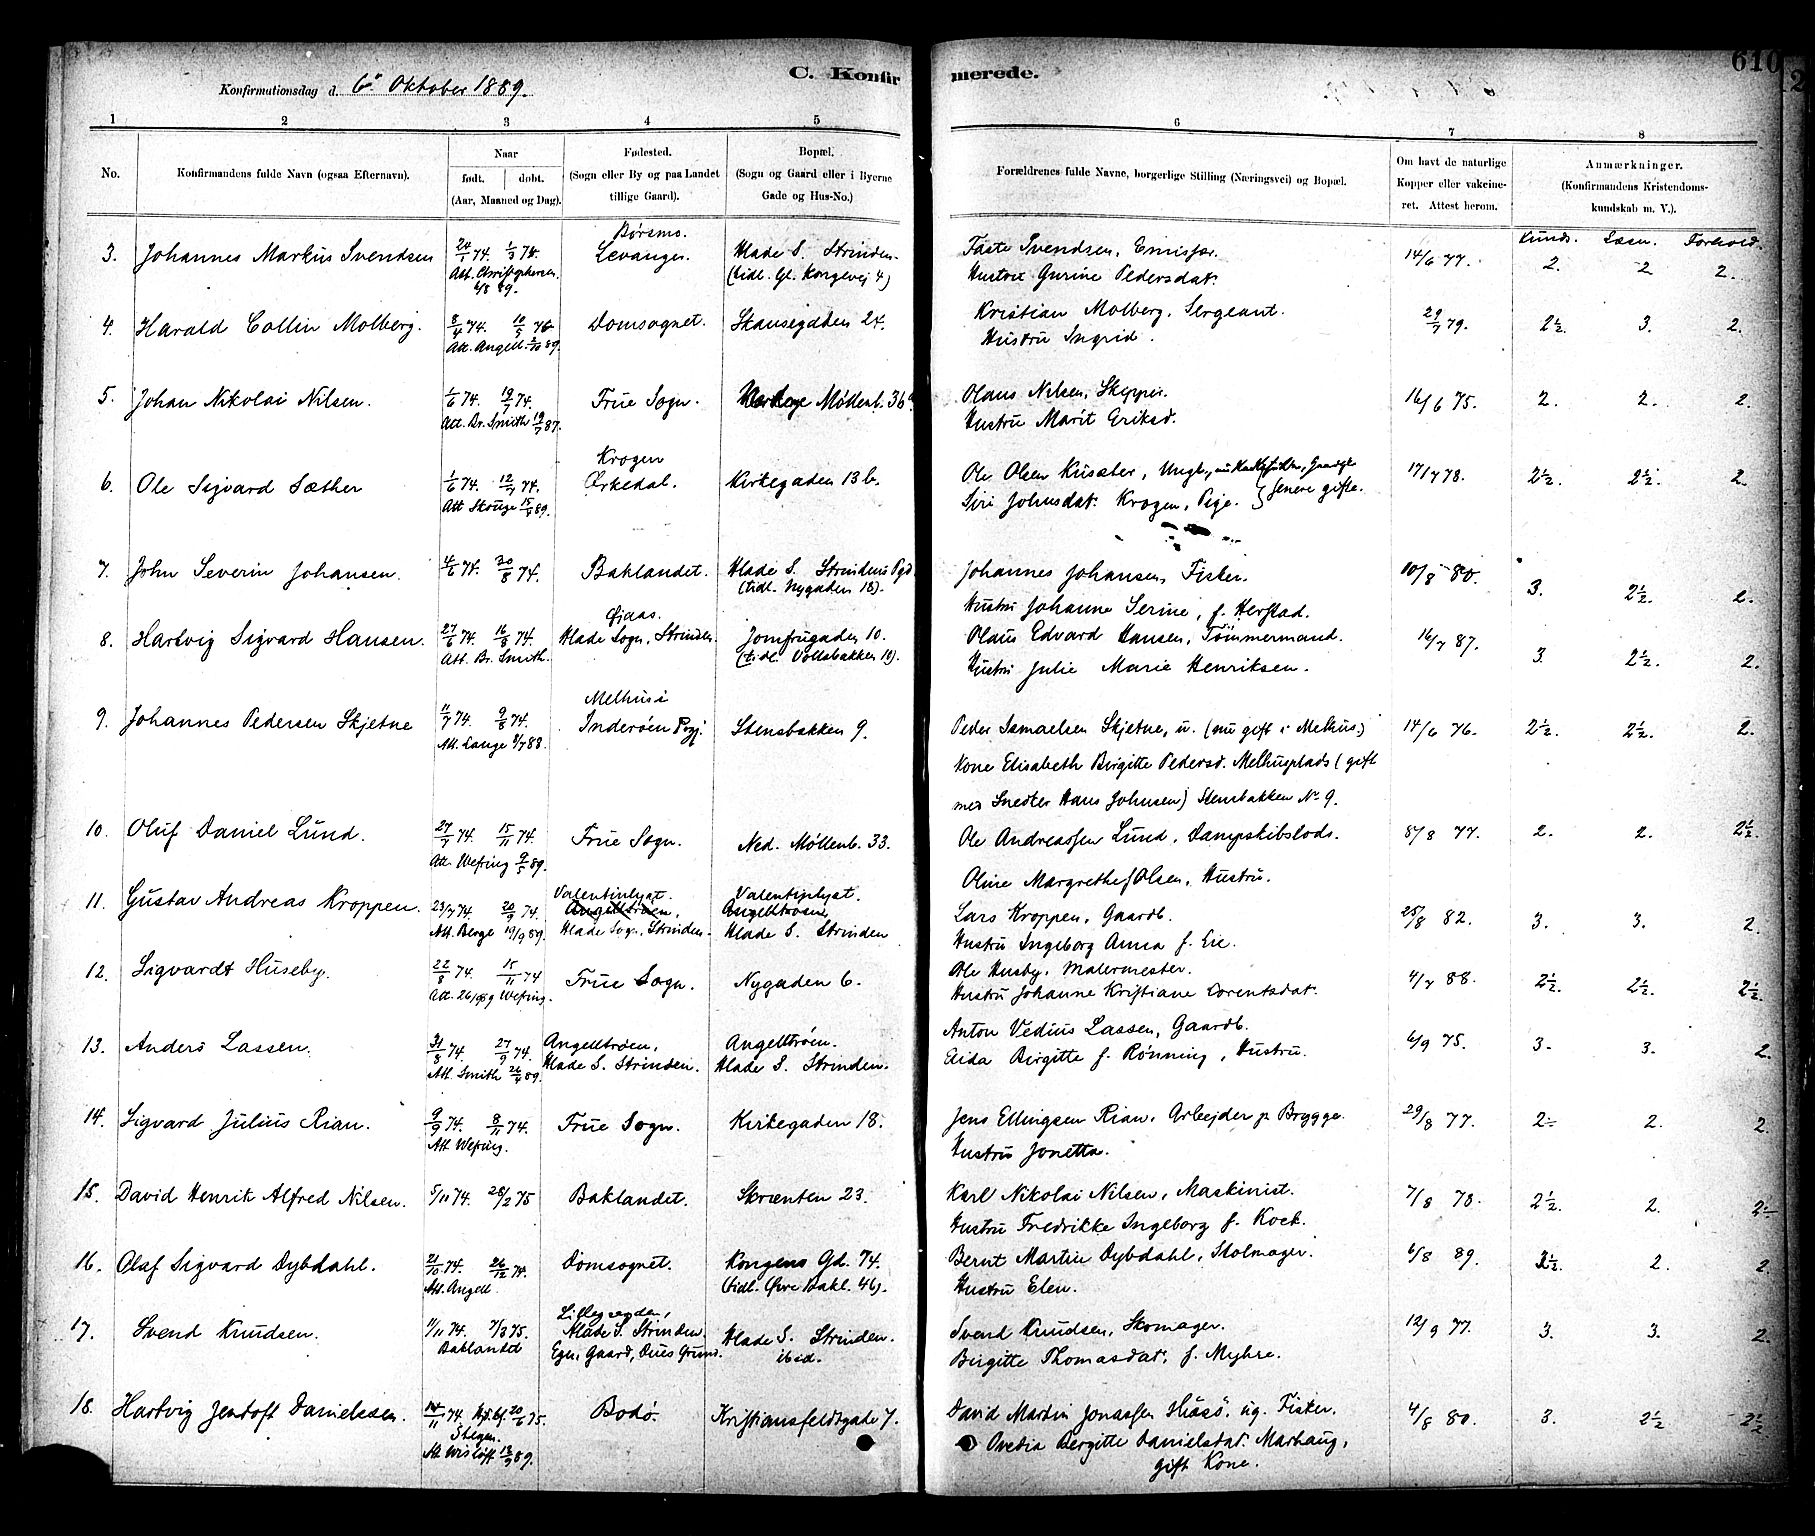 C. Konfir
merede.
610
2
Konfirmationsdag d. 6te Oktober 1889.
1 2 3 4 5 6 7 8
No.
Konfirmandens fulde Navn (ogsaa Efternavn).
Naar
født. døbt.
(Aar, Maaned og Dag).
Fødested.
(Sogn eller By og paa Landet
tillige Gaard).
Bopæl.
(Sogn og Gaard eller i Byerne
Gade og Hus-No.)
Forældrenes fulde Navne, borgerlige Stilling (Næringsvei) og Bopæl.
Om havt de naturlige
Kopper eller vakcine-
ret. Attest herom.
Anmærkninger.
(Konfirmandens Kristendoms-
kundskab m. V.).
Kunds. Læsn. Forhold.
3. Johannes Markus Svendsen
24/1 74. 1/3 74.
Att. Christophersen
6/8 89.
Børsmo.
Levanger.
Hlade S. Strinden.
(tidl. Gl. Kongevej 4)
Faste Svendsen, Emissær.
Hustru Gurine Pedersdat.
14/6 77. 2. 2 2.
4. Harald Collin Molberg.
8/4 74. 10/5 76
Att. Angell. 2/10 89.
Domsognet.
Skansegaden 24.
Kristian Molberg, Sergeant.
Hustru Ingrid.
29/7 79. 2½. 3. 2.
5. Johan Nikolai Nilsen.
1/6 74. 19/7 74.
Att. Br. Smith 19/7 87.
Frue Sogn.
Møllenb. 36a
Olaus Nilsen, Skipper.
Hustru Marit Eriksd.
16/6 75. 2. 2. 2.
6. Ole Sigvard Sæther
1/6 74. 12/7 74.
Att Skouge 15/8 89.
Krogen
Ørkedal.
Kirkegaden 13 b.
Ole Olsen Kusæter, Ungk.,
Siri Johnsdat. Krogen, Pige. } senere gifte.
17/7 78. 2½. 2½. 2.
7. John Severin Johansen.
4/6 74. 30/8 74.
Baklandet.
Hlade S. Strindens Pgd.
(tidl. Nygaden 18).
Johannes Johansen, Fisker.
Hustru Johanne Serine, f. Herstad.
10/8 80. 3. 2½. 2.
8. Hartvig Sigvard Hansen.
27/6 74. 16/8 74.
Att. Br. Smith.
Gjaas.
Hlade Sogn, Strinden
Jomfrugaden 10.
(tidl. Vollabakken 18).
Olaus Edvard Hansen, Tömmermand.
Hustru Julie Marie Henriksen.
16/7 87. 3. 2½. 2.
9. Johannes Pedersen Skjetne
11/7 74. 9/8 74.
Att. Lange 8/7 88.
Melhus i
Inderøen Prgj.
Stensbakken 9.
Peder Ismaelsen Skjetne, u. (nu gift i Melhus.)
Kone Elisabeth Birgitte Pedersd. Melhusplads (gift
med Snedker Hans Johnsen) Stensbakken No 9.
14/6 76. 2½. 2½. 2.
10. Oluf Daniel Lund.
27/7 74. 15/11 74.
Att. Wefring 9/5 89.
Frue Sogn.
Ned. Møllenb. 33.
Ole Andreassen Lund, Dampskibslods.
Oline Margrethe f Olsen, Hustru.
8/8 77. 2. 2. 2½.
11. Gustav Andreas Kroppen.
23/7 74. 20/9 74.
Att. Berge 19/9 89.
Valentinlyst.
Angelltrøen.
Hlade Sogn, Strinden.
Valentinlyst.
Angelltrøen
Hlade S. Strinden
Lars Kroppen, Gaardb.
Hustru Ingeborg Anna f. Eie.
25/8 82. 3. 3. 2.
12. Sigvardt Huseby.
22/8 74. 15/11 74
Att. Wefring.
Frue Sogn.
Nygaden 6.
Ole Husby, Malermester.
Hustru Johanne Kristiane Lorentsdat.
4/7 88. 2½. 2½. 2½.
13. Anders Lassen.
31/8 74. 27/9 74.
Att. Smith 26/4 89.
Angelltrøen,
Hlade S. Strinden.
Angelltrøen.
Hlade S. Strinden.
Anton Vedius Lassen, Gaardb.
Birgitte f. Rønning, Hustru.
6/9 75. 3. 3. 2.
14. Sigvard Julius Rian.
9/9 74. 8/11 74.
Att Wefring.
Frue Sogn.
Kirkegaden 18.
Jens Ellingsen Rian, Arbejder p. Brygge.
Hustru Jonetta.
29/8 77. 2÷ 2. 2.
15. David Henrik Alfred Nilsen.
5/11 74. 28/2 75
Baklandet.
Skrænten 23.
Karl Nikolai Nilsen, Maskinist.
Hustru Fredrikke Ingeborg f. Kock.
7/8 78. 2½. 2. 2÷
16. Olaf Sigvard Dybdahl.
21/10 74. 26/12 74.
Att. Angell.
Domsognet.
Kongens Gd. 74.
(tidl. Øvre Bakl. 46).
Bernt Martin Dybdahl, Stolmager.
Hustru Elen.
6/8 89. 2½. 2. 2.
17. Svend Knudsen.
11/11 74. 7/3 75.
Baklandet
Lillegaarden,
Hlade S. Strinden.
Egen Gaard, Grund.
Hlade S. Strinden.
ibid.
Svend Knudsen, Skomager.
Birgitte Thomasdat, f. Myhre.
12/9 77. 3. 3. 2.
18. Hartvig Jentoft Danielssen.
14/11 74. 20/6 75.
Stegen.
Att Wisløff 18/9 89.
Bodø.
Kristiansfeldtgade 7.
David Martin Jonassen Husø, ug. Fisker.
Ovedia Bergitte Danielsdat. Marhaug,
gift Kone.
4/8 80. 3. 2½ 2½